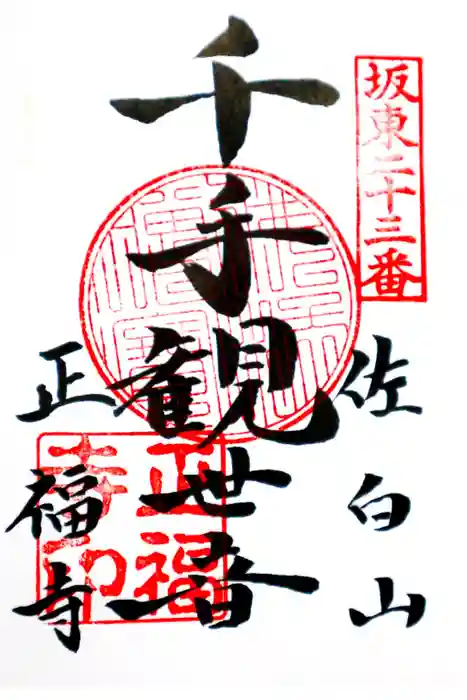 坂東二十三番
佐白山
千手観世音
正福寺
正福寺印